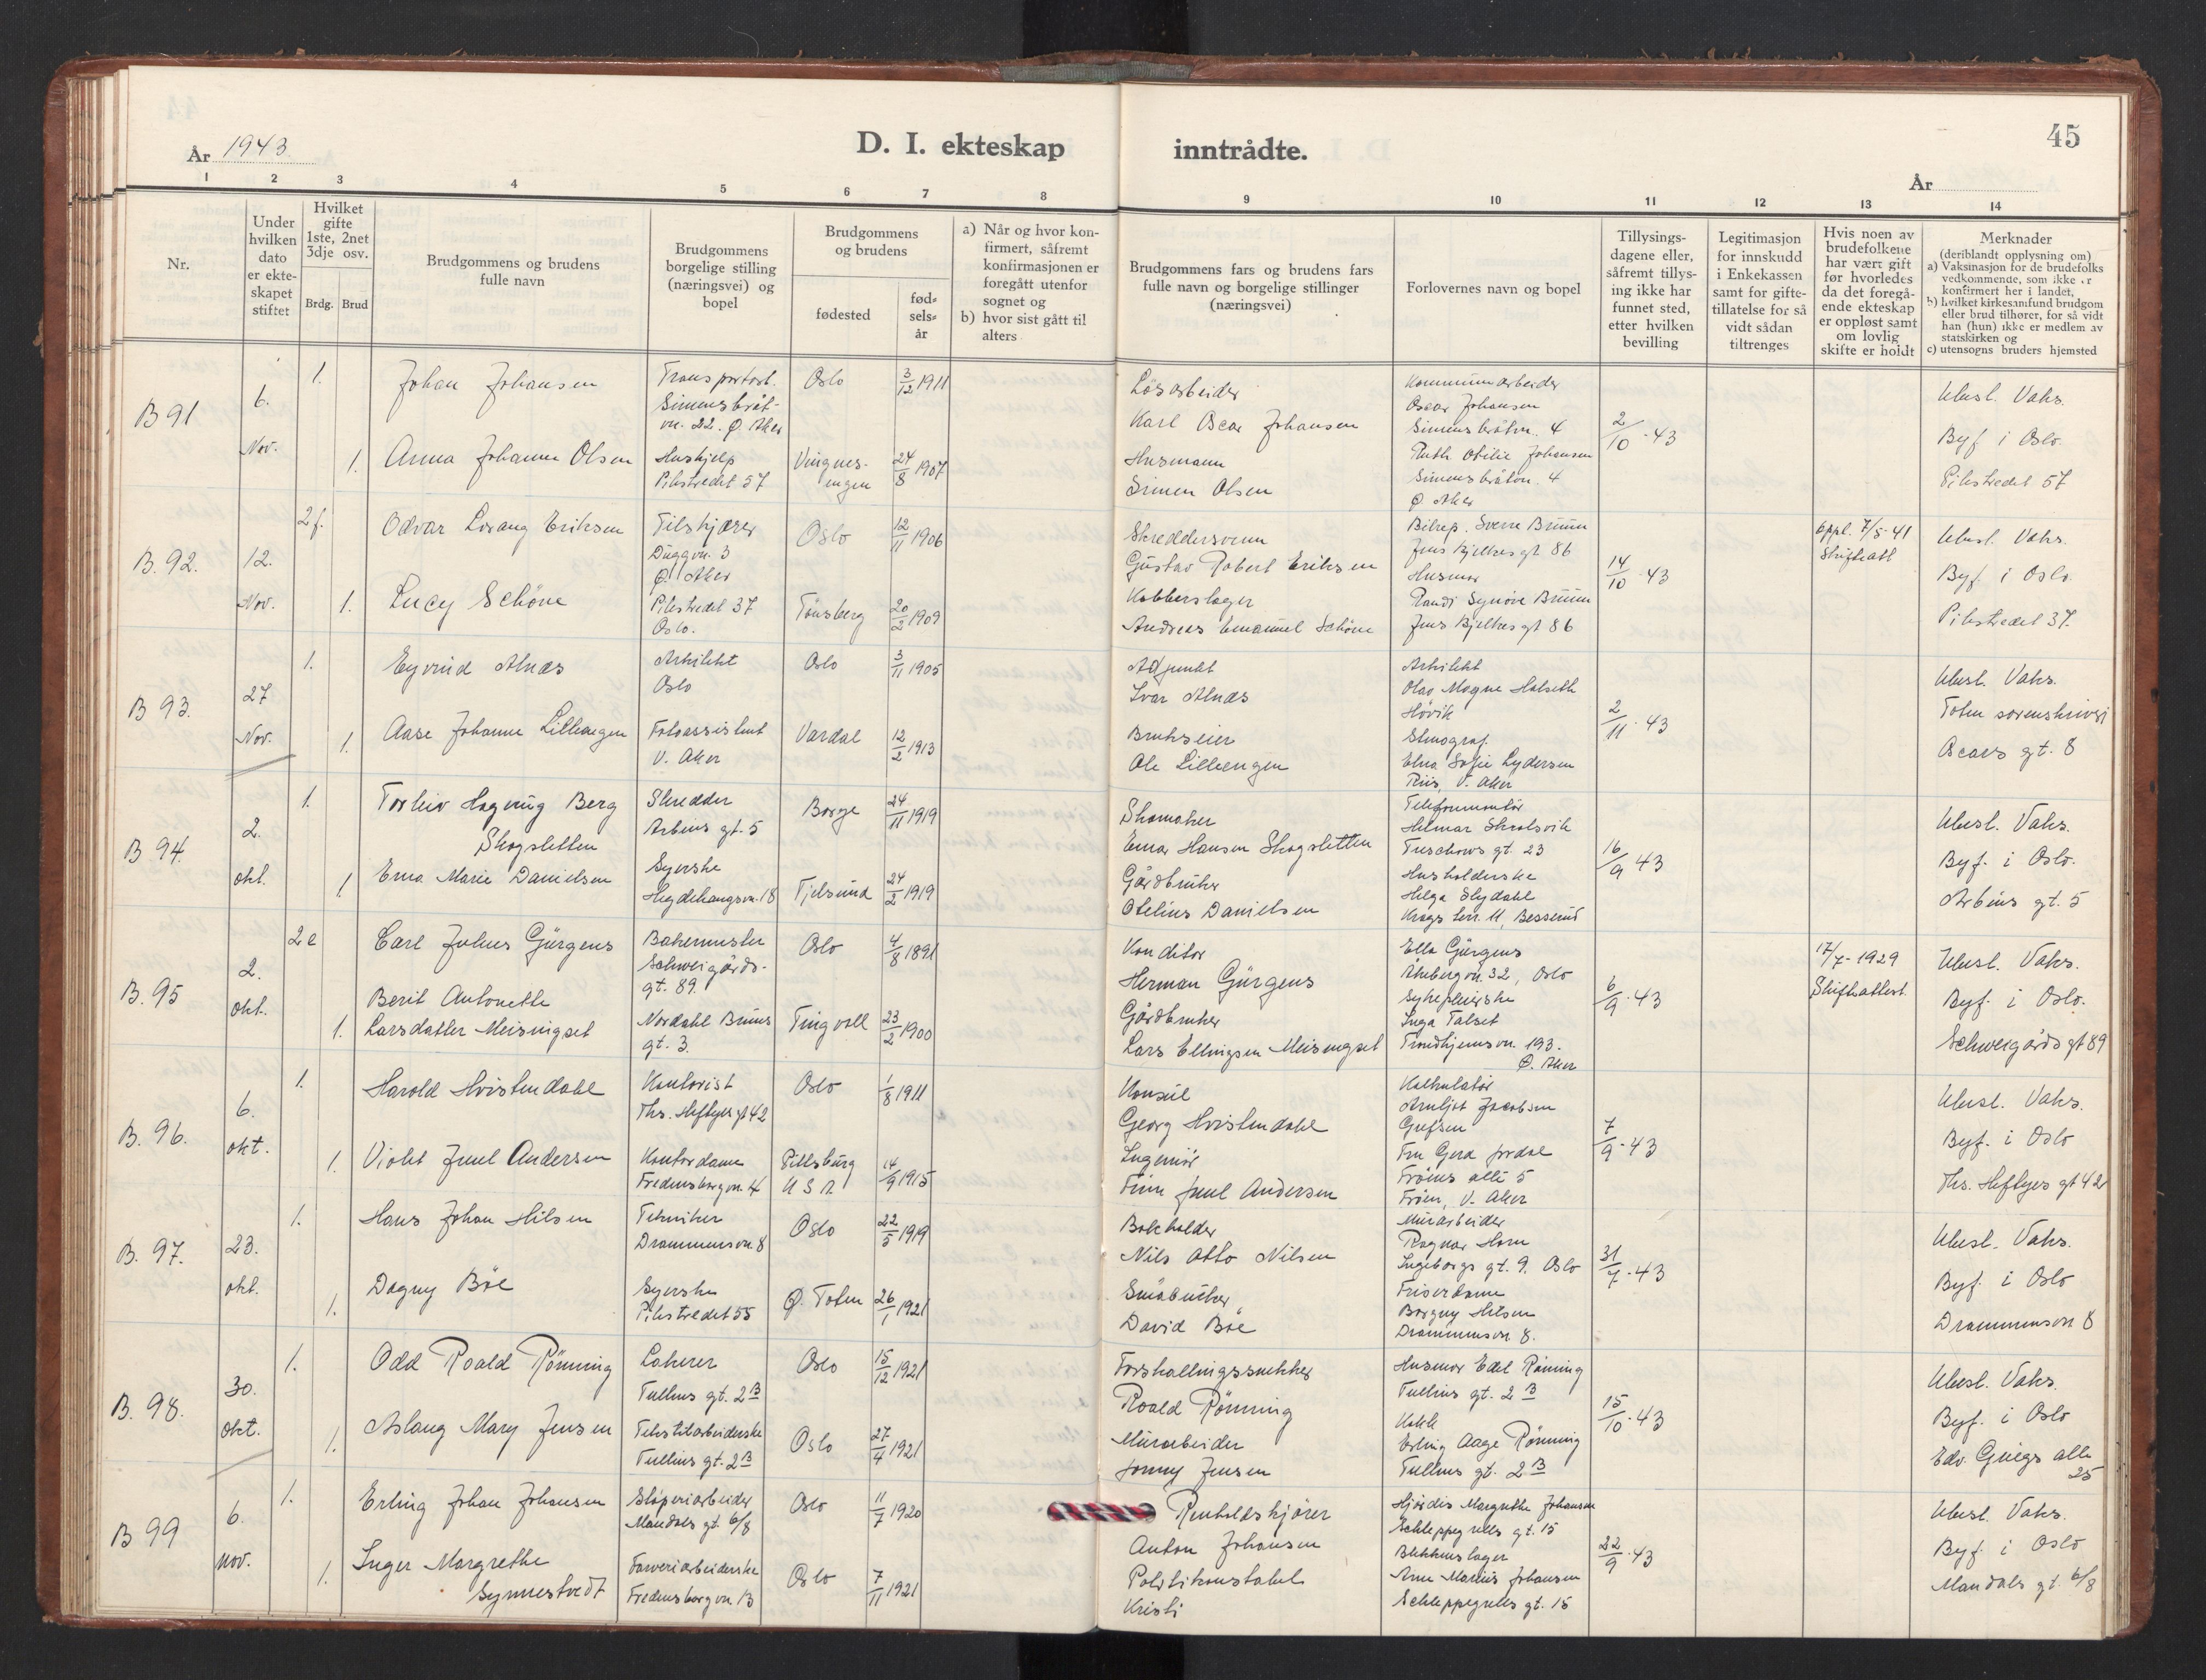 45
År 1943.
D. I. ekteskap inntrådte.
År
1 2 3 4 5 6 7 8 9 10 11 12 13 14
Nr.
Under
hvilken
dato
er ekte-
skapet
stiftet
Hvilket
gifte
1ste, 2net
3dje osv.
Brdg.
Brud
Brudgommens og brudens
fulle navn
Brudgommens
borgelige stilling
(næringsvei) og
bopel
Brudgommens
og brudens
fødested
fød-
sels-
år
a) Når og hvor kon-
firmert, såfremt
konfirmasjonen er
foregått utenfor
sognet og
b) hvor sist gått til
alters
Brudgommens fars og brudens fars
fulle navn og borgelige stillinger
(næringsvei)
Forlovernes navn og bopel
Tillysings-
dagene eller,
såfremt tillys-
ing ikke har
funnet sted,
etter hvilken
bevilling
Legitimasjon
for innskudd
i Enkekassen
samt for gifte-
tillatelse for så
vidt sådan
tiltrenges
Hvis noen av
brudefolkene
har vært gift
før hvorledes
da det foregå-
ende ekteskap
er oppløst samt
om lovlig
skifte er holdt
Merknader
(deriblandt opplysning om)
a) Vaksinasjon for de brudefolks
vedkommende, som ikke er
konfirmert her i landet,
b) hvilket kirkesamfund brudgom
eller brud tilhører, for så vidt
han (hun) ikke er medlem av
statskirken og
c) utensogns bruders hjemsted
B 91
6.
Nov.
1.
Johan Johansen
Transportarb.
Simensbråt-
vn. 22. Ø. Aker
Oslo
3/12 1911
Løsarbeider
Karl Oscar Johansen
Kommunearbeider
Oscar Johansen
Simensbråtvn. 4
2/10-43
Ubesl. Vaks.
Byf i Oslo.
Pilestredet 57
1.
Anna Johanne Olsen
Hushjelp
Pilestredet 57
24/8 1907
Husmann
Simen Olsen
Ruth Otilie Johansen
Simensbråtvn. 4
Ø. Aker
B. 92.
12.
Nov.
2 f.
Odvar Lorang Eriksen
Duggvn. 3
Ø. Aker
Oslo
12/11 1906
Skreddersvenn
Gustav Robert Eriksen
Bilrep. Sverre Bruun
Jens Bjelkes gt 86
14/10-43
Oppl. 7/5-41
Skifteatt
Ubesl. Vaks.
Byf. i Oslo.
Pilestredet 37.
1.
Lucy Schöne
Pilestredet 37
Oslo.
Tønsberg
20/2 1909
Kobberslager
Andreas Emanuel Schöne
Husmor
Randi Synøve Bruun
Jens Bjelkes gt 86
B 93.
27
Nov.
1.
Eyvind Alnæs
Arkitekt
Oslo
Oslo
3/11 1905
Adjunkt
Ivar Alnæs
Arkitekt
Olav Magne Halseth
Høvik
2/11-43
Ubesl. Vaks.
Toten sorenskriveri
Oscars gt. 8
1.
Aase Johanne Lilleengen
Fotoassistent
V. Aker
Vardal
12/2 1913
Brukseier
Ole Lilleengen
Stenograf.
Elna Sofie Lydersen
Riis, V. Aker
B 94.
2.
okt.
1.
Torleiv Hagring Berg
Skogsletten
Skredder
Arbins gt. 5
Borge
24/11 1919
Skomaker
Einar Hansen Skogsletten
Telefonmontør
Helmar Skrolsvik
Tuschows gt. 23
16/9-43
Ubesl. Vaks.
Byf. i Oslo.
Arbins gt. 5
1.
Erna Marie Danielsen
Syerske
Heydehaugsvn. 18
Tjelsund
24/2 1919
Gårdbruker
Otelius Danielsen
Husholderske
Helga Slydahl
Krags terr. 11, Besserud
B. 95
2.
okt.
2 e
Carl Julius Gürgens
Bakermester
Schweigårds-
gt. 89.
Oslo
4/8 1891
Konditor
Herman Gürgens
Ella Gürgens
Åkebergvn. 32, Oslo
6/9-43
17/7-1929
Skifteattest
Ubesl. Vaks.
Byf. i Oslo.
Schweigårds gt 89
1.
Berit Antonette
Larsdatter Meisingset
Nordahl Bruns
gt. 3.
Tingvoll
23/2 1900
Gårdbruker
Lars Ellingsen Meisingset
Sykepleierske
Inga Talset
Trondhjemsvn. 193.
Ø. Aker
B. 96.
6.
okt.
1.
Harald Hvistendahl
Kontorist
Ths. Heftyes gt 42
Oslo
1/8 1911
Konsul
Georg Hvistendahl
Kalkulatør
Arnljot Jacobsen
Grefsen
7/9-43
Ubesl. Vaks.
Byf. i Oslo
Ths. Heftyes gt 42
1.
Violet Juul Andersen
Kontordame
Fredensborgvn. 4
Pittsburg
U S A
14/9 1915
Ingeniør
Finn Juul Andersen
Fru Gerd Jordal
Frøens allé 5
Frøen, V. Aker
B. 97.
23.
okt.
1.
Hans Johan Hilsen
Tekniker
Drammensvn. 8
Oslo
22/5 1919
Bokholder
Nils Otto Nilsen
Murarbeider
Ragnar Horn
Ingeborgs gt. 9. Oslo
31/7-43
Ubesl. Vaks.
Byf. i Oslo
Drammensvn 8
1.
Dagny Bøe
Syerske
Pilestredet 55
Ø. Toten
26/1 1921
Småbruker
David Bøe
Friserdame
Borgny Hilsen
Drammensvn 8.
B. 98.
30.
okt.
1.
Odd Roald Rønning
Lakerer
Tullins gt. 2 B
Oslo
15/12 1921
Forskallingssnekker
Roald Rønning
Husmor Edel Rønning
Tullins gt. 2 B
15/10-43
Ubesl. Vaks.
Byf. i Oslo
Edv. Griegs alle
25
1.
Aslaug Mary Jensen
Tekstilarbeiderske
Tullins gt. 2 B
Oslo
27/4 1921
Murarbeider
Jonny Jensen
Kokk
Erling Aage Rønning
Tullins gt. 2 B
B 99
6.
nov.
1.
Erling Johan Johansen
Støperiarbeider
Mandals gt. 6/8
Oslo
11/7 1920
Renholdskjører
Anton Johansen
Hjørdis Margrethe Johansen
Schleppegrells gt. 15
22/9-43
Ubesl. Vaks.
Byf. i Oslo
Mandals gt. 6/8
1.
Inger Margrethe
Synnestvedt
Farveriarbeiderske
Fredensborgvn 13
Oslo
7/11 1921
Politikonstabel
Kristi
Blikkenslager
Arne Marius Johansen
Schleppegrells gt. 15